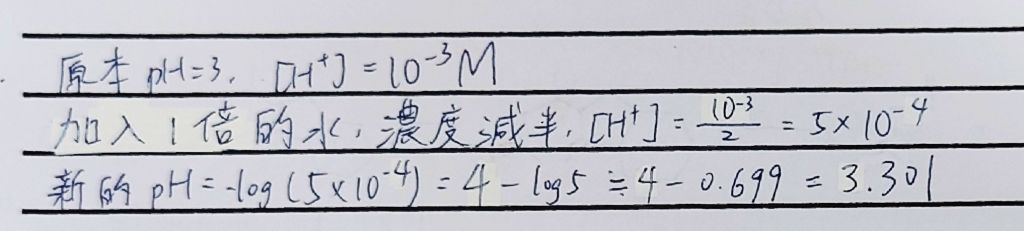 原本 pH=3, [H⁺] = 10⁻³M
加入 1 倍的水, 濃度減半, [H⁺] = 10⁻³/2 = 5×10⁻⁴
新的 pH = -log (5×10⁻⁴) = 4 - log5 ≒ 4 - 0.699 = 3.301